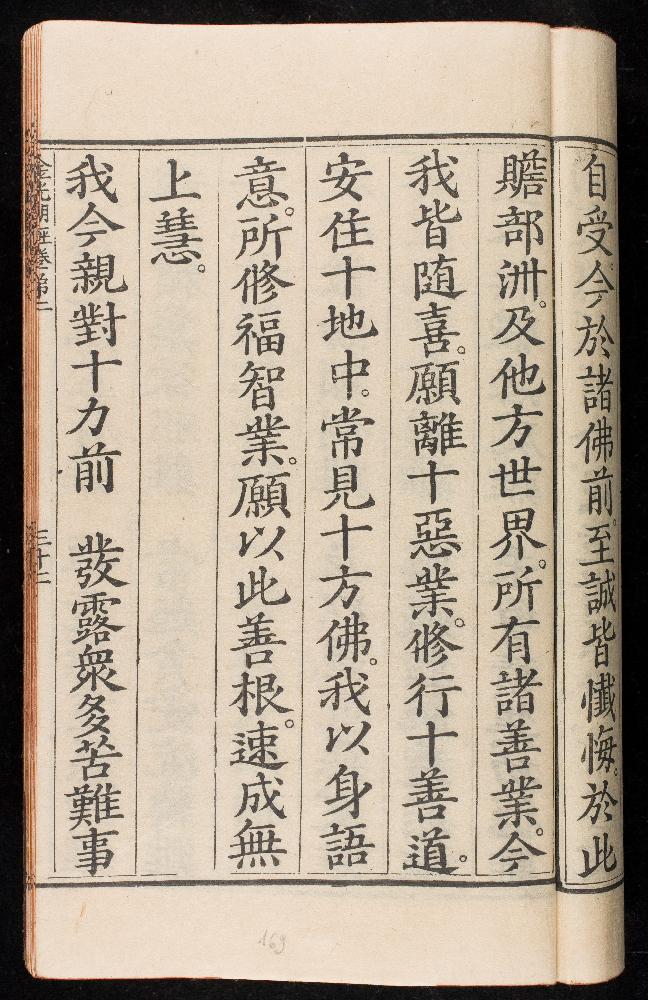 自受。今於諸佛前。至誠皆懺悔。於此
贍部洲。及他方世界。所有諸善業。今
我皆隨喜。願離十惡業。修行十善道。
安住十地中。常見十方佛。我以身語
意。所修福智業。願以此善根。速成無
上慧。
我今親對十力前　發露衆多苦難事
金光明經卷第二
三十二
169